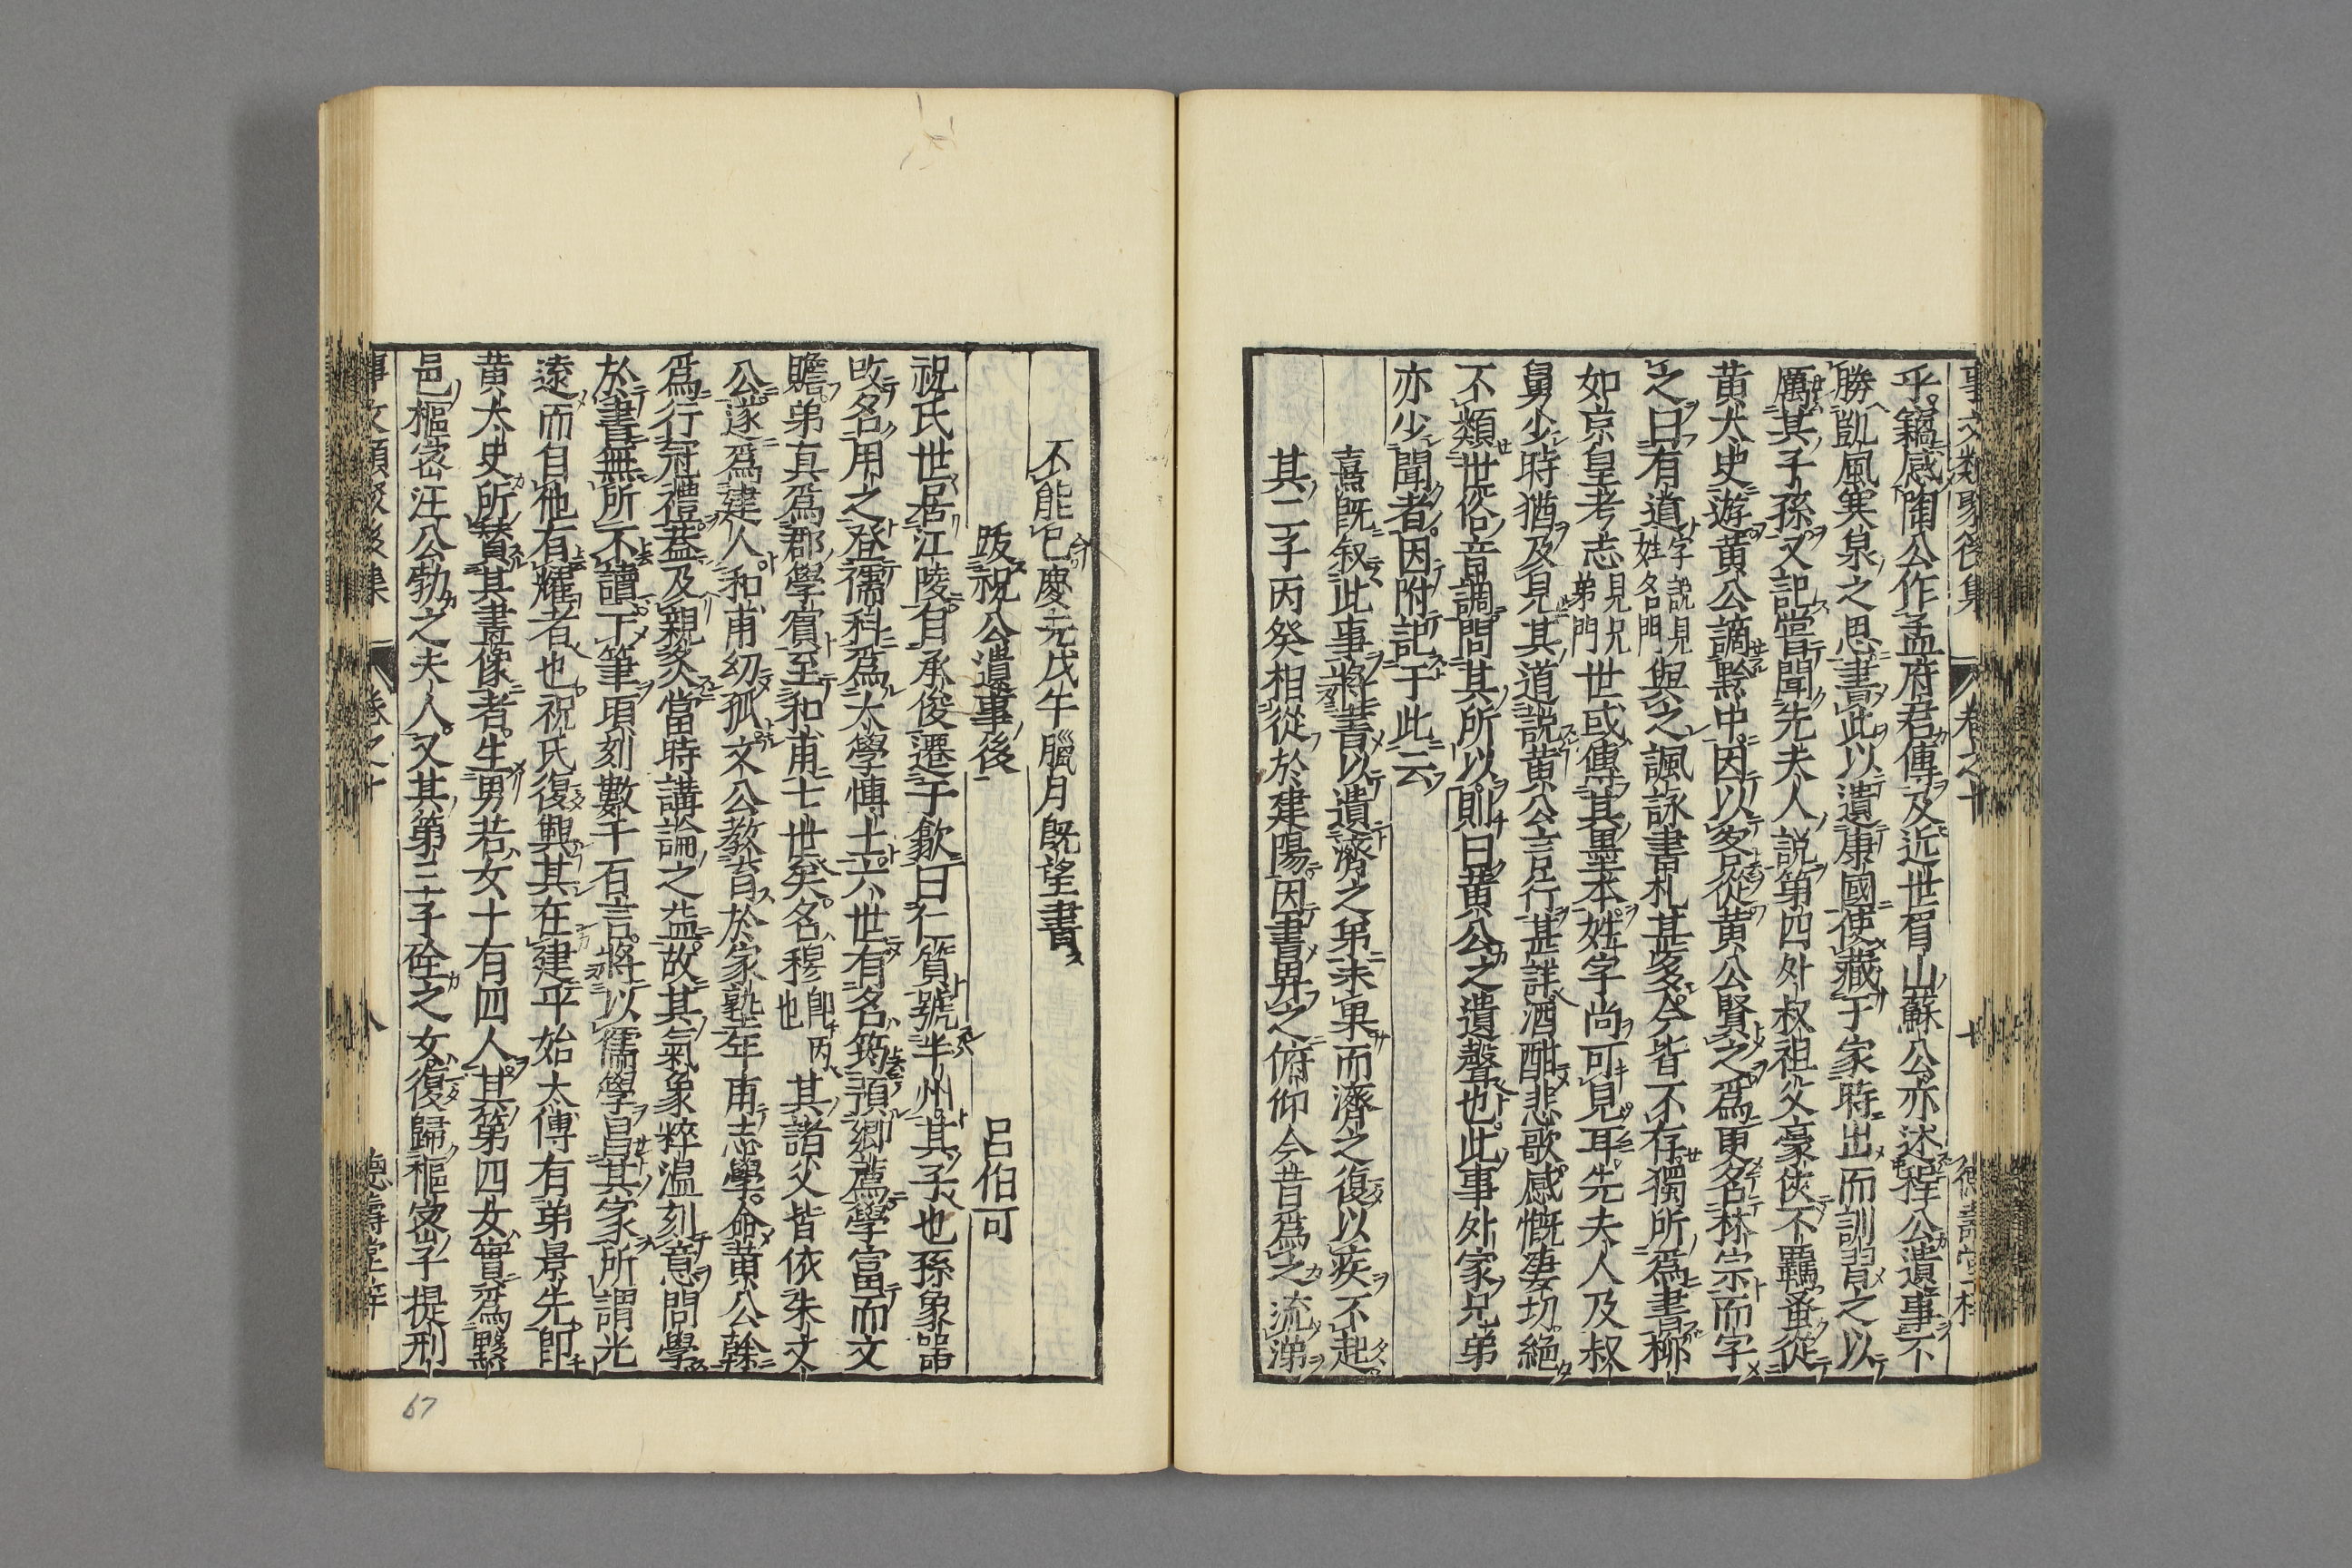 事文類聚後集 卷之十 十 德壽堂梓
乎竊感陶公作孟府君傳及近世眉山蘇公亦述程公遺事不
勝凱風寒泉之思書此以遺康國使藏于家時出而訓習之以
厲其子孫又記嘗聞先夫人說第四外叔祖父豪俠不羈蚤從
黃太史遊黃公謫黔中因以客從黃公賢之爲更名林宗而字
之曰有道字說見姓名門與之諷詠書札甚多今皆不存獨所爲書柳
如京皇考志見兄弟門世或傳其墨本姓字尚可見耳先夫人及叔
舅少時猶及見其道說黃公言行甚詳酒酣悲歌感慨凄切絕
不類世俗音調問其所以則曰黃公之遺聲也此事外家兄弟
亦少聞者因附記于此云
熹既叙此事將書以遺濟之弟未果而濟之復以疾不起
其二子丙癸相從於建陽因書畀之俯仰今昔爲之流涕
不能已慶元戊午臘月既望書
跋祝公遺事後 呂伯可
祝氏世居江陵有承俊遷于歙曰仁質號半州其子也孫象器
改名用之登儒科爲太學博士六世有名筠預鄉薦學富而文
贍弟真爲郡學賓至和甫七世矣名穆即丙也其諸父皆依朱文
公遂爲建人和甫幼孤文公教育於家塾年甫志學命黃公榦
爲行冠禮葢及親炙當時講論之益故其氣象粹温刻意問學
於書無所不讀下筆頃刻數千百言將以儒學昌其家所謂光
遠而自他有耀者也祝氏復興其在建乎始太傅有弟景先即
黃太史所贊其畫像者生男若女十有四人其第四女實爲黟
邑樞密汪公勃之夫人又其第三子硂之女復歸樞密子提刑
事文類聚後集 卷之十 八 德壽堂梓
67